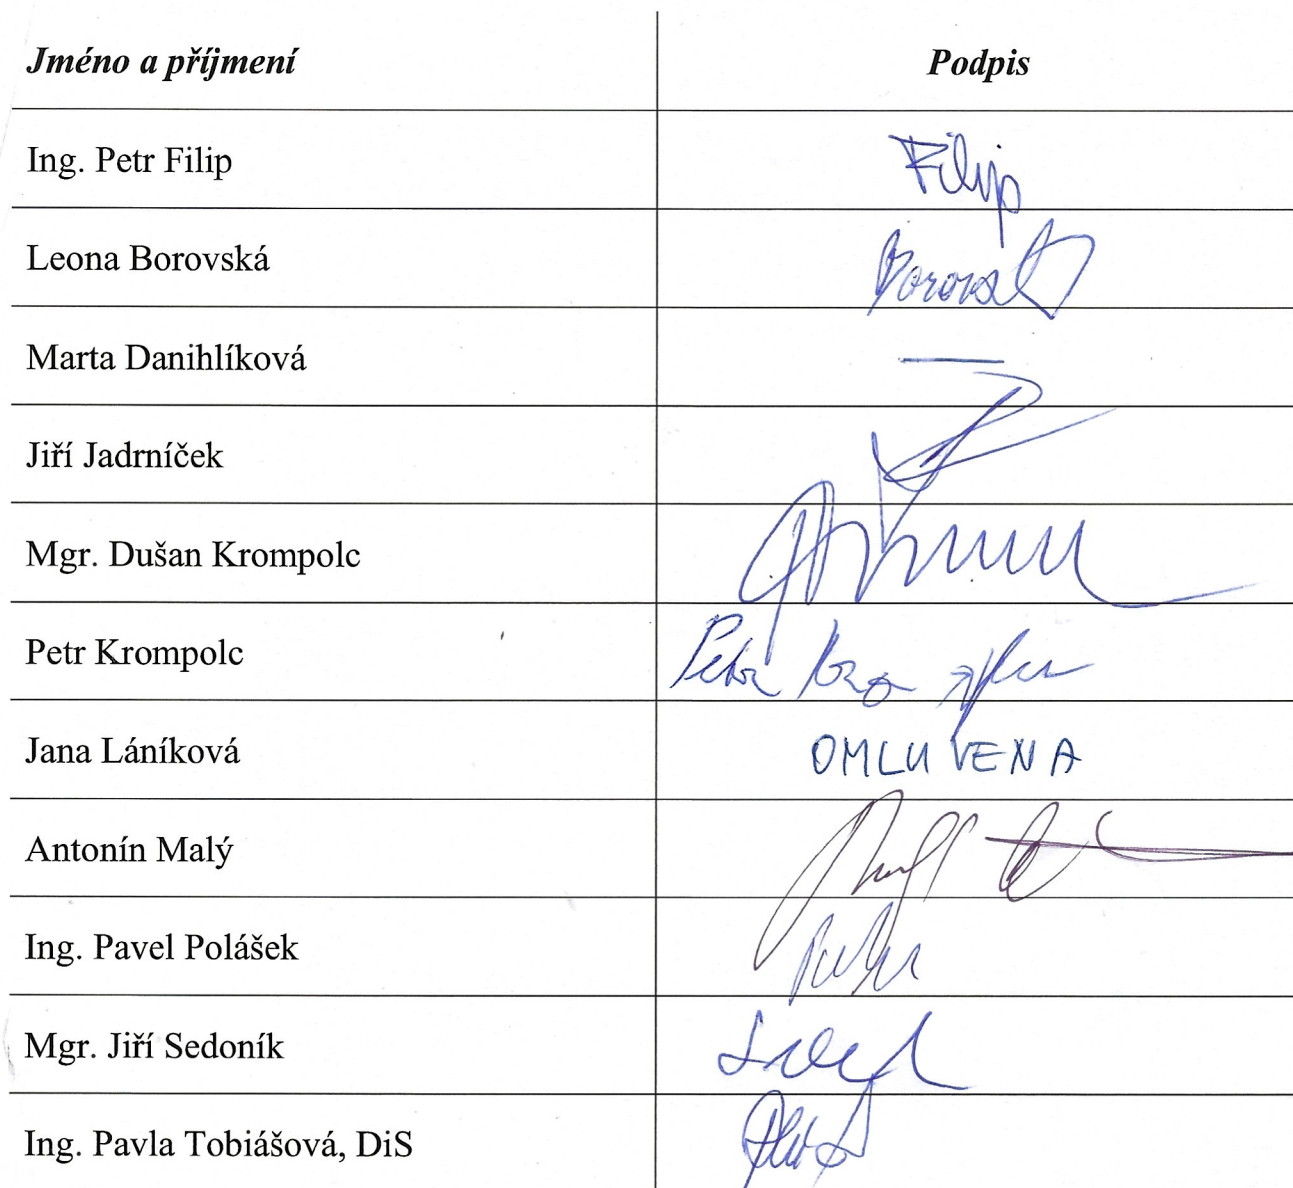 Jméno a příjmení Podpis
Ing. Petr Filip Filip
Leona Borovská
Marta Danihlíková —
Jiří Jadrníček
Mgr. Dušan Krompolc
Petr Krompolc Petr
Jana Láníková OMLUVENA
Antonín Malý
Ing. Pavel Polášek
Mgr. Jiří Sedoník
Ing. Pavla Tobiášová, DiS